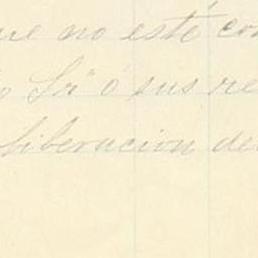 que no esté con
o Sr ó sus re
liberacion de